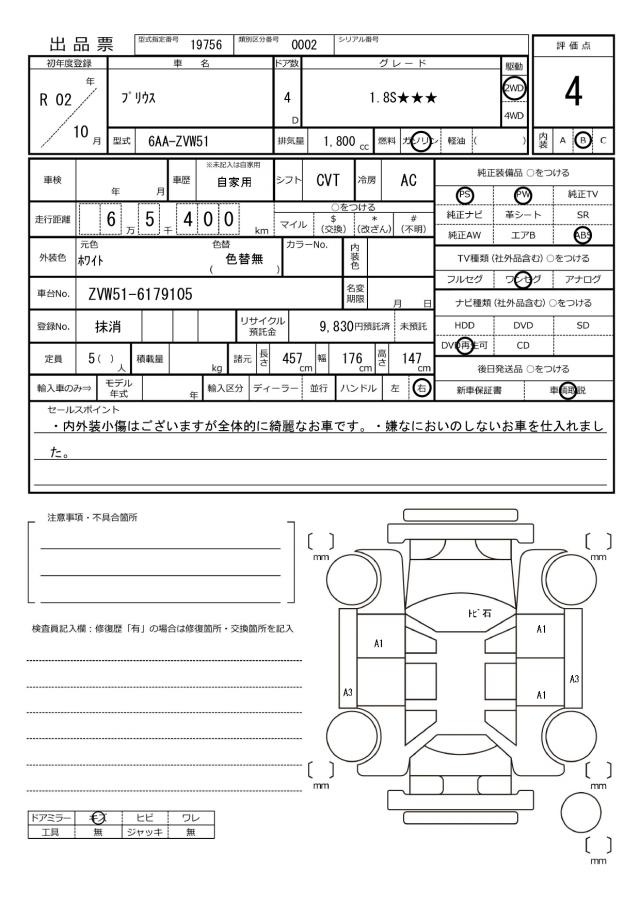 出品票 型式指定番号 19756 類別区分番号 0002 シリアル番号
評価点
4
初年度登録 車名 ドア数 グレード 駆動
R 02 年 10 月 プリウス 4 D 1.8S★★★ 2WD 4WD
型式 6AA-ZVW51 排気量 1,800 cc 燃料 ガソリン 軽油 ( ) 内装 A B C
車検 年 月 車歴 ※未記入は自家用 自家用 シフト CVT 冷房 AC
走行距離 6 万 5 千 4 0 0 km
○をつける
マイル $ (交換) * (改ざん) # (不明)
外装色 元色 ホワイト 色替 ( 色替無 ) カラーNo. 内装色
車台No. ZVW51-6179105 名変期限 月 日
登録No. 抹消 リサイクル預託金 9,830円預託済 未預託
定員 5( )人 積載量 kg 諸元 長さ 457cm 幅 176cm 高さ 147cm
輸入車のみ⇒ モデル年式 年 輸入区分 ディーラー 並行 ハンドル 左 右
純正装備品 ○をつける
PS PW 純正TV
純正ナビ 革シート SR
純正AW エアB ABS
TV種類 (社外品含む) ○をつける
フルセグ ワンセグ アナログ
ナビ種類 (社外品含む) ○をつける
HDD DVD SD
DVD再生可 CD
後日発送品 ○をつける
新車保証書 車輌取説
セールスポイント
・内外装小傷はございますが全体的に綺麗なお車です。・嫌なにおいのしないお車を仕入れまし
た。
注意事項・不具合箇所
検査員記入欄：修復歴「有」の場合は修復箇所・交換箇所を記入
〔 〕 mm
〔 〕 mm
トビ石
A1
A1
A3
A1
A3
〔 〕 mm
〔 〕 mm
〔 〕 mm
ドアミラー キズ ヒビ ワレ
工具 無 ジャッキ 無